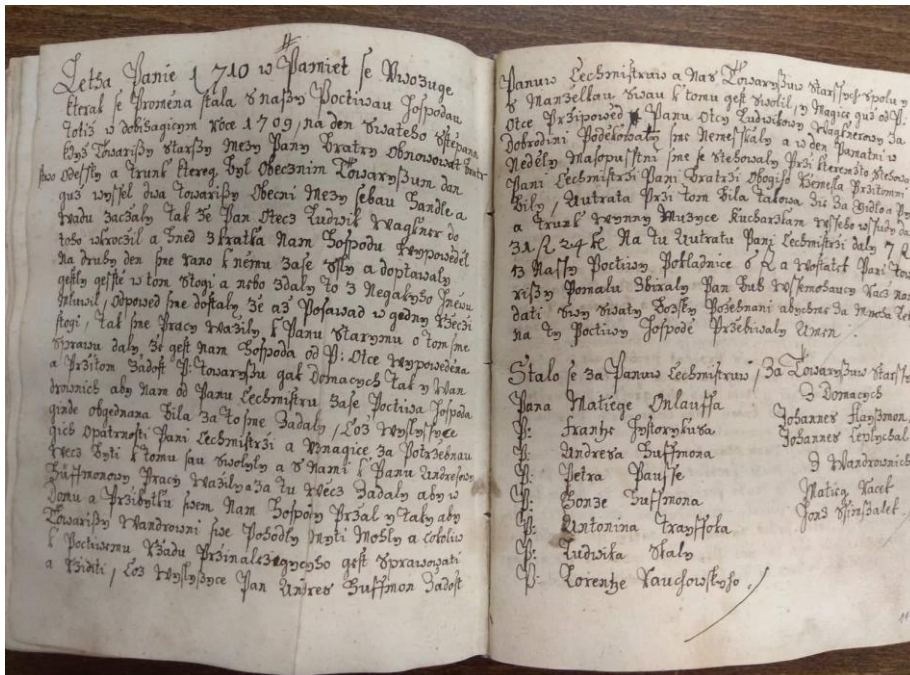 Letha Panie 1710 w Pamiet se Uwozuge
kterak se Promena stala s naßy Poctiwau Hospodau
totiz w dobihagicym roce 1709, na den Swateho Sstepana
kdyz Towarißy Starßy Mezy Pany Bratry Obnowowat Bratr
stwo Odessly a Trunk ktereg byl Obecznim Towaryßum dan
guz wyssel dwa Towarißy Obecni Mezy sebau Handle a
Wadu zaczaly tak ze Pan Otecz Ludwik Wagkner do
toho wkroczil a hned zkratka Nam Hospodu wypowedel
Na druhy den sme rano k nemu zase ssly a doptawaly
gestly gesste w tom Stogi a nebo zdaly to z Negakyho hnewu
Mluwil, Odpowed sme dostaly ze az Posawad w gedny Rzeczi
stogi, tak sme Pracy Wazily k Panu Starymu o tom sme
Sprawu daly ze gest Nam Hospoda od P: Otce wypowedena
a Przitom Zadost P: Towaryßu gak Domacych tak y Wan
drownich aby Nam od Panu Cechmistru zase Poctiwa Hospoda
ginde obgednana bila za to sme Zadaly, Coz Wyslyssycze
gich Opatrnosti Pani Cechmistrzi a Uznagice za Potrzebnau
Wecz byti k tomu sau Swolyly a s Nami k Panu Andresowy
Huffmonowy Pracy Wazily a za tu Wecz Zadaly aby w
Domu a Przibytku swem Nam Hospody Przal y taky aby
Towarißy Wandrowni swe Pohodly Myti Mohly a cokoliw
k Poctiwemu Rzadu Przinalezegycyho gest Sprawowati
a Rziditi, Coz Wyslyßyce Pan Andres Huffmon Zadost
Panuw Cechmistruw a Nas Towaryßuw Starssych Spolu y
s Manzelkau swau k tomu gest swolil, y Magice guz od P:
Otce Przipowed Panu Otcy Ludwikowy Wagknerowy za
Dobrodini Podekowaly sme Nemesskaly a w den Pamatni w
Nedely Masopustni sme se Stehowaly Przi kteremzto Stehowa
Pani Cechmistrzi Pani Bratrzi Obogiho Rzemesla Przitomni
Bily, Autrata Przi tom bila takowa
a trunk Wynny Muzyce Kucharzkam wsseho wssudy
31 R 24 kr Na tu Autratu Pani Cechmistrzi daly 7 R
13 Nassy Poctiwy Pokladnice 6 R a Wostatek Pani Towa
rißy Pomalu Sbiraly Pan Buh Wssemohaucy Racz nam
dati swy swaty Bozsky Pozehnani abychme za Mnoha Let
na ty Poctiwy Hospode Przebiwaly Amen
Stalo se za Panuw Cechmistruw, za Towaryßuw Starss
z Domacych
Pana Matiege Onlauffa
Johannes
P: Frantze Hystorykusa
Johannes Teplychal
P: Andresa Huffmona
z Wandrownich
P: Petra Pausse
Matieg Vacek
P: Honze Huffmona
P: Antonina Trayffoka
P: Ludwika Skaly
P: Lorentze Rauchowskyho